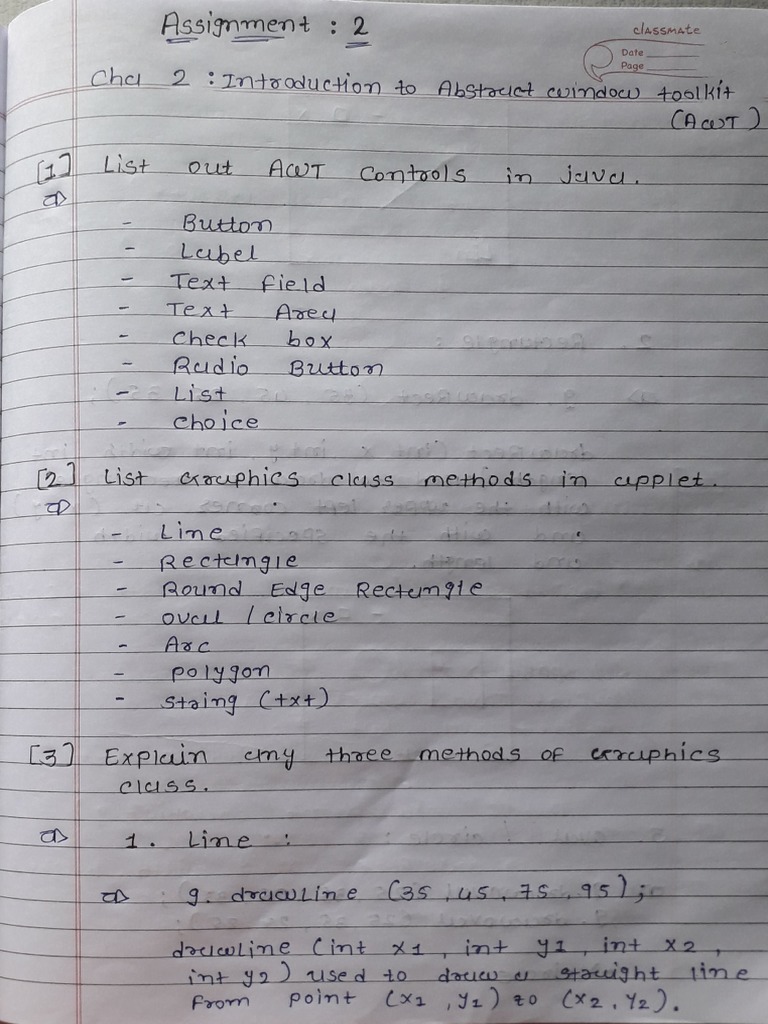 Assignment : 2
classmate
Date
Page
Cha 2 : Introduction to Abstract window toolkit
(AWT)
[1] List out AWT Controls in java.
⇒
- Button
- Label
- Text field
- Text Area
- Check box
- Radio Button
- List
- choice
[2] List Graphics class methods in applet.
⇒
- Line
- Rectangle
- Round Edge Rectangle
- oval / circle
- Arc
- polygon
- string (txt)
[3] Explain any three methods of Graphics
class.
⇒ 1. Line :
⇒ g. drawLine (35, 45, 75, 95);
drawline (int x1, int y1, int x2,
int y2) used to draw a straight line
from point (x1, y1) to (x2, y2).